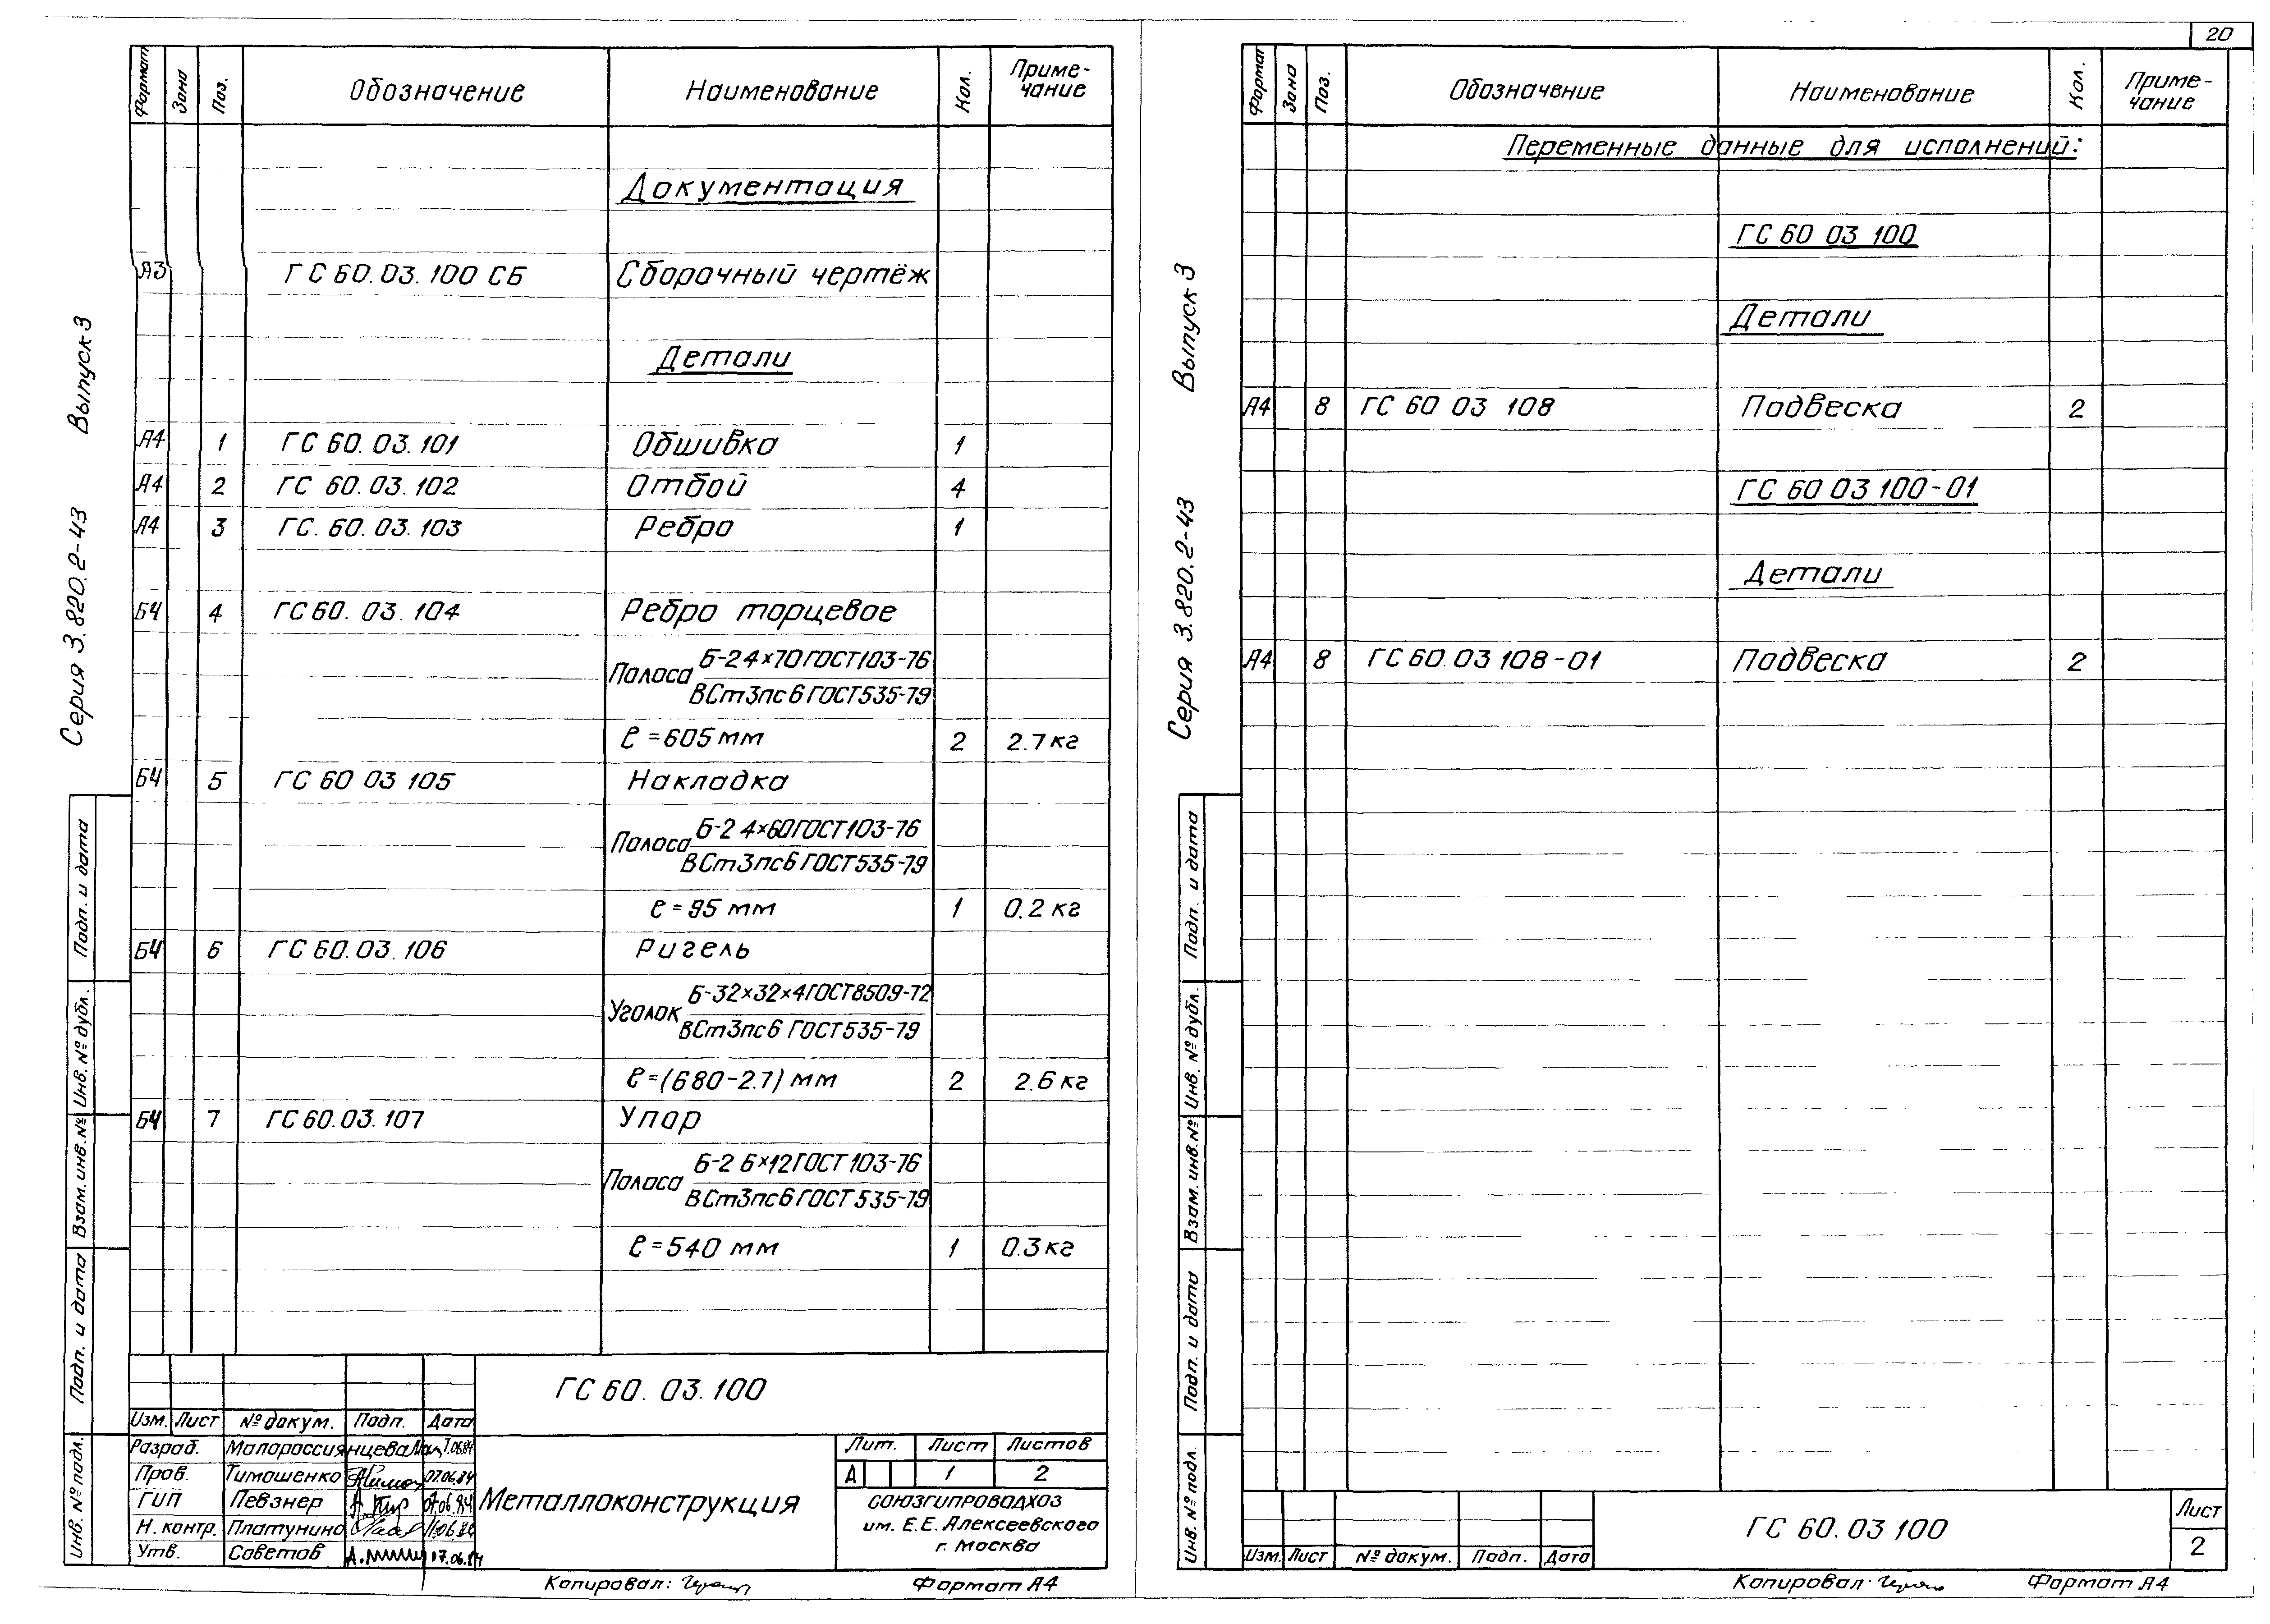 20
Серия 3.820.2-43 Выпуск 3
Формат Зона Поз. Обозначение Наименование Кол. Приме-
чание
Документация
А3 ГС 60.03.100 СБ Сборочный чертёж
Детали
А4 1 ГС 60.03.101 Обшивка 1
А4 2 ГС 60.03.102 Отбой 4
А4 3 ГС. 60.03.103 Ребро 1
БЧ 4 ГС 60.03.104 Ребро торцевое
Полоса Б-2 4×70 ГОСТ 103-76
ВСт3пс6 ГОСТ 535-79
ℓ=605 мм 2 2.7 кг
БЧ 5 ГС 60 03 105 Накладка
Полоса Б-2 4×60 ГОСТ 103-76
ВСт3пс6 ГОСТ 535-79
ℓ=95 мм 1 0.2 кг
БЧ 6 ГС 60.03.106 Ригель
Уголок Б-32×32×4 ГОСТ 8509-72
ВСт3пс6 ГОСТ 535-79
ℓ=(680-2.7) мм 2 2.6 кг
БЧ 7 ГС 60.03.107 Упор
Полоса Б-2 6×12 ГОСТ 103-76
ВСт3пс6 ГОСТ 535-79
ℓ=540 мм 1 0.3 кг
Подп. и дата
Инв. № дубл.
Взам. инв. №
Подп. и дата
Инв. № подл.
ГС 60.03.100
Изм. Лист № докум. Подп. Дата
Разраб. Малороссиянцева
Пров. Тимошенко 07.06.84
ГИП Певзнер 07.06.84
Н. контр. Платунино
Утв. Советов 07.06.84
Металлоконструкция
Лит. Лист Листов
А 1 2
СОЮЗГИПРОВОДХОЗ
им. Е.Е. Алексеевского
г. Москва
Копировал: Формат А4
Серия 3.820.2-43 Выпуск 3
Формат Зона Поз. Обозначение Наименование Кол. Приме-
чание
Переменные данные для исполнений:
ГС 60 03 100
Детали
А4 8 ГС 60 03 108 Подвеска 2
ГС 60 03 100-01
Детали
А4 8 ГС 60.03 108-01 Подвеска 2
Подп. и дата
Инв. № дубл.
Взам. инв. №
Подп. и дата
Инв. № подл.
Изм. Лист № докум. Подп. Дата
ГС 60.03 100
Лист
2
Копировал: Формат А4